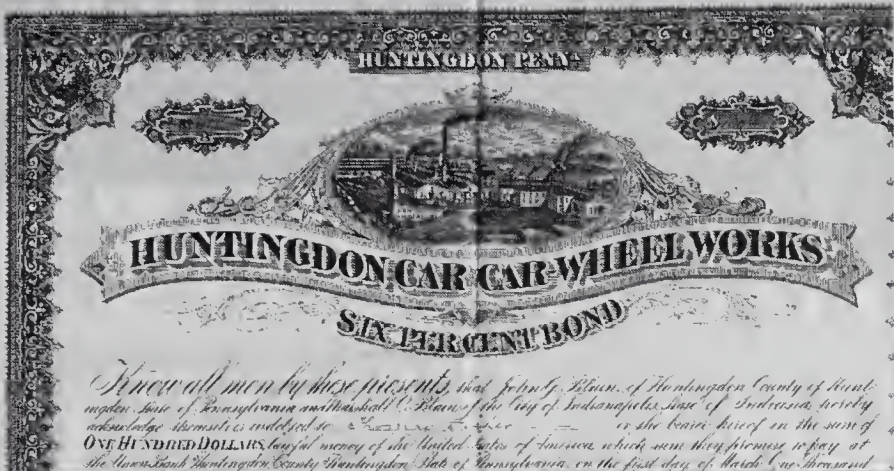 HUNTINGDON PENNA
HUNTINGDON CAR CAR-WHEEL WORKS
SIX PER CENT BOND
Know all men by these presents, that John G. of Huntingdon County of Hunt-
ingdon State of Pennsylvania and Marshall C. of the City of Indianapolis State of Indiana hereby
acknowledge themselves indebted to or the bearer hereof in the sum of
ONE HUNDRED DOLLARS, lawful money of the United States of America which sum they promise to pay at
the Union Bank Huntingdon County Huntingdon State of Pennsylvania on the first day of March One thousand